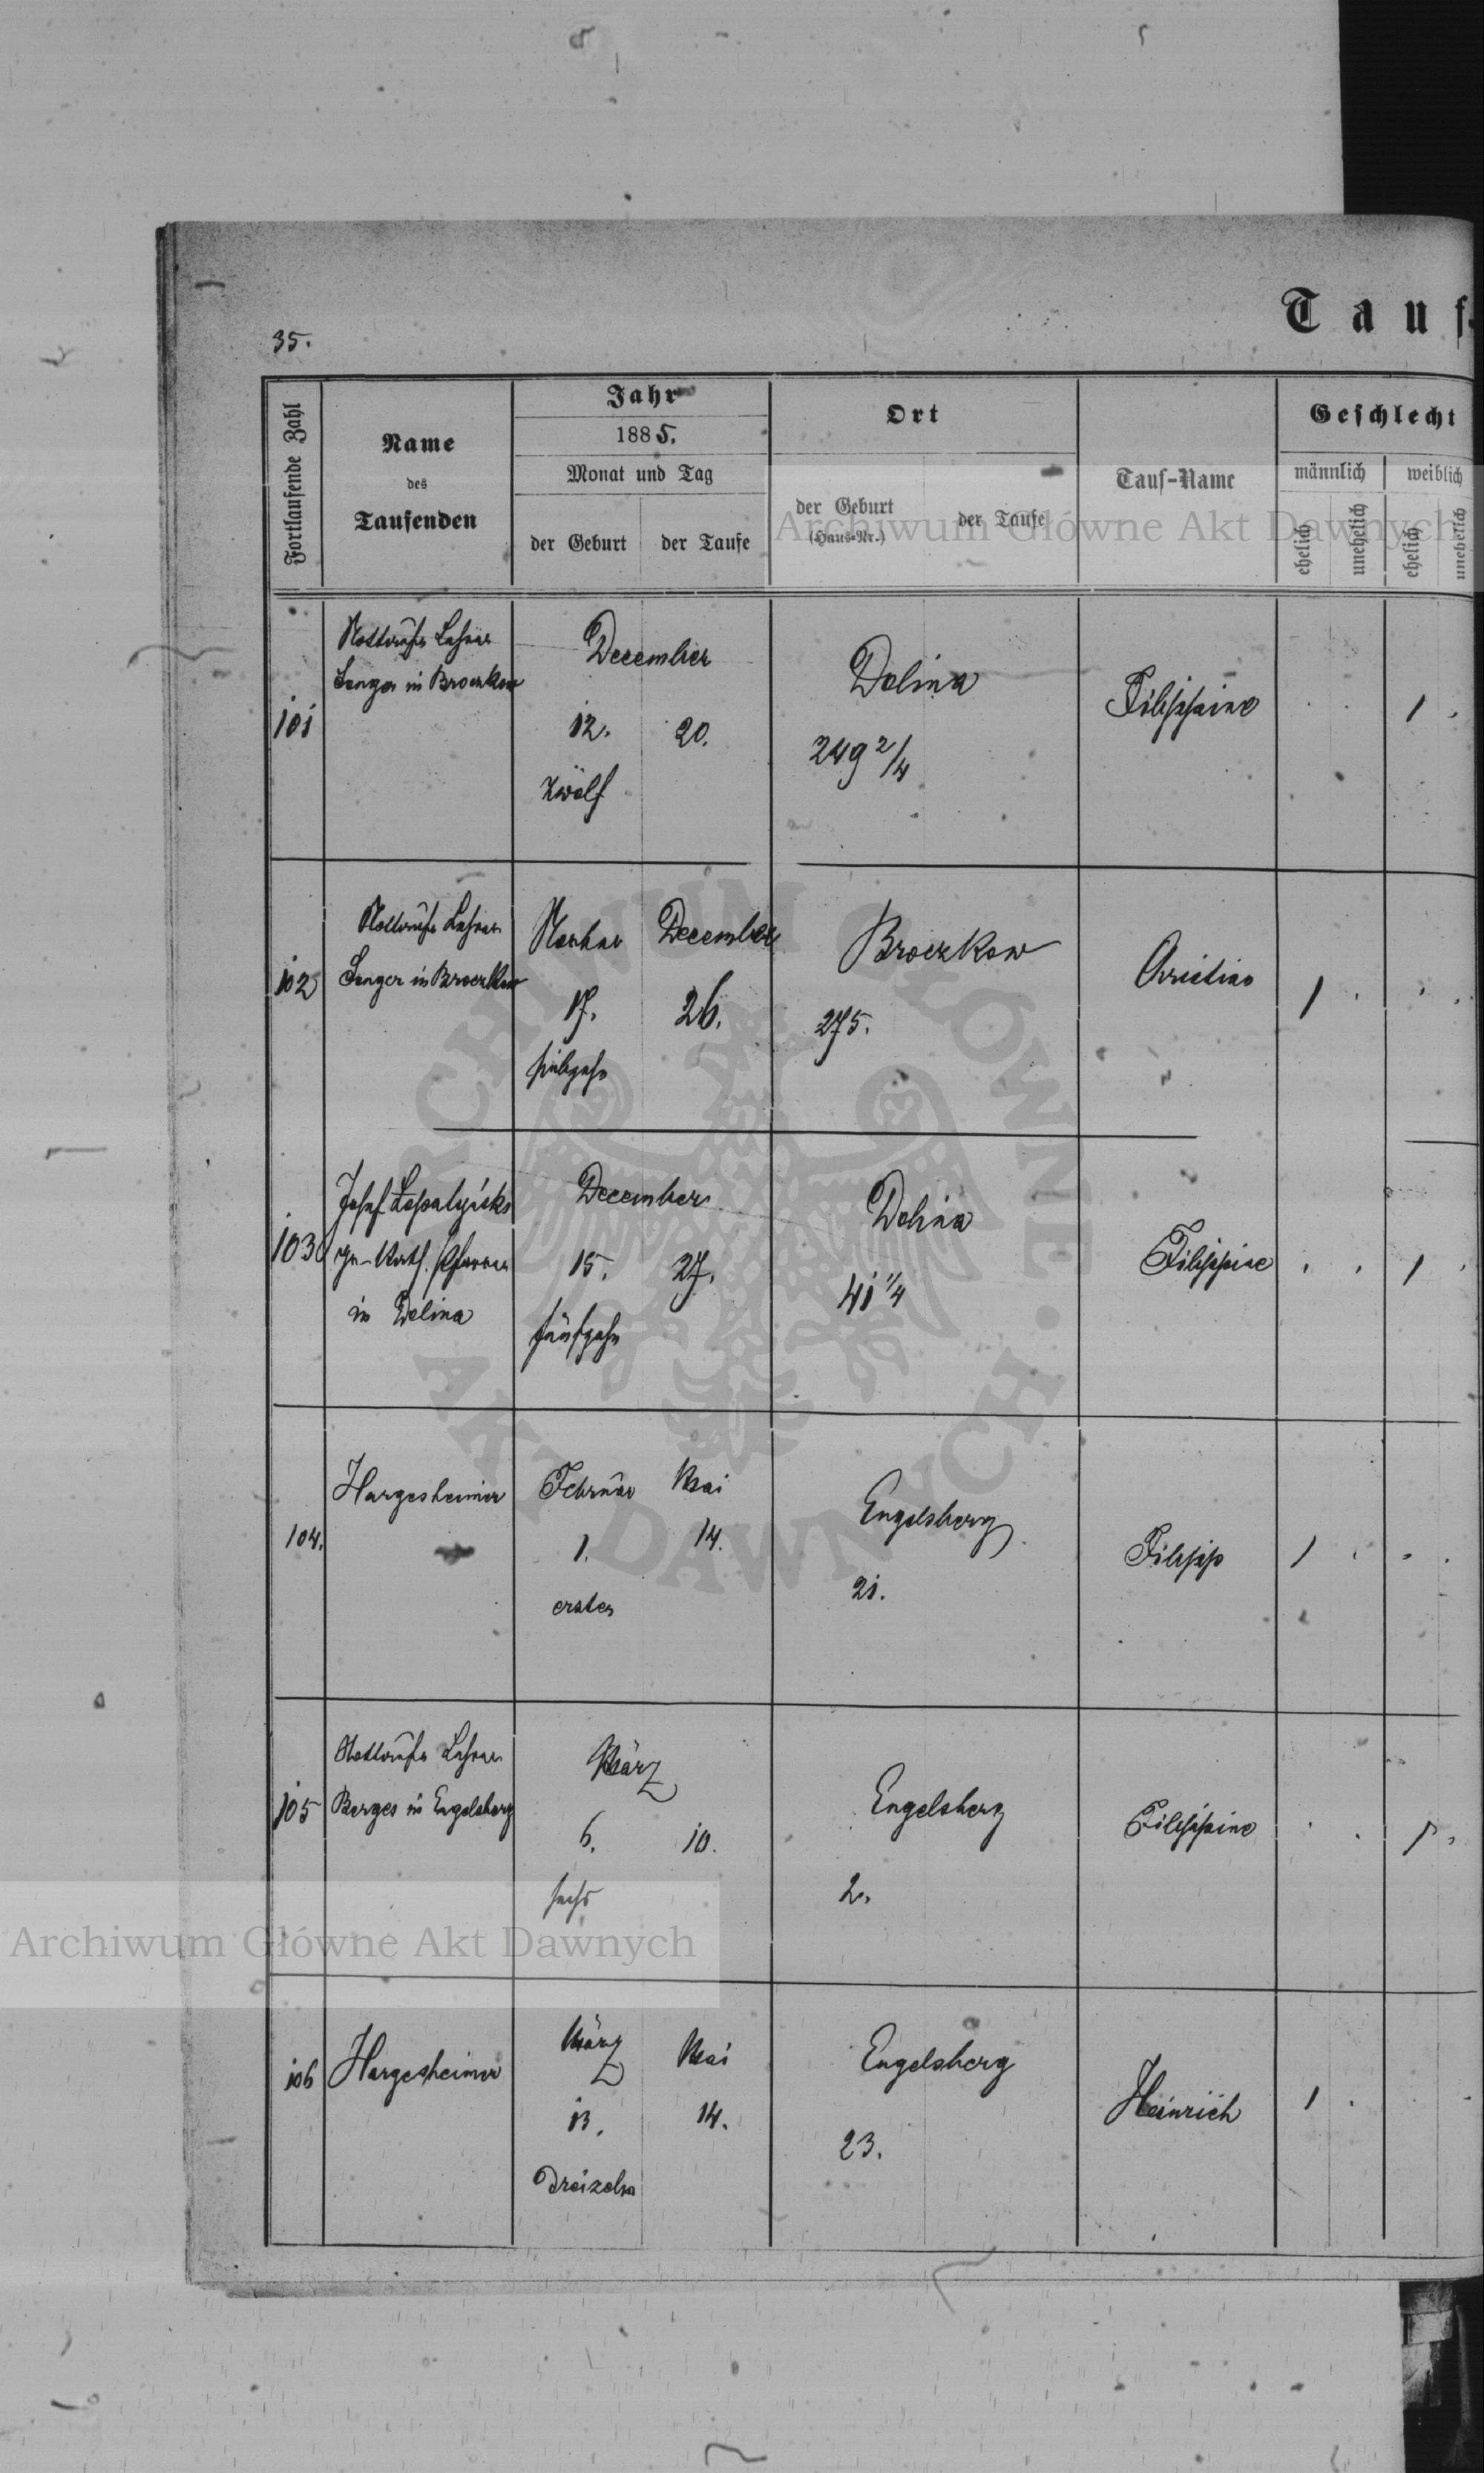 Tauf-
35.
Fortlaufende Zahl
Name
des
Taufenden
Jahr
1885.
Monat und Tag
der Geburt
der Taufe
Ort
der Geburt
(Haus-Nr.)
der Taufe
Tauf-Name
Geschlecht
männlich
weiblich
ehelich
unehelich
ehelich
unehelich
101
Nottaufe Lehrer
in Broczkow
December
12. 20.
zwölf
Dolina
249 2/4
Filippine
1
102
Nottaufe Lehrer
in Broczkow
December
17. 26.
siebzehn
Broczkow
275.
1
103
Josef
gr. Kath. Pfarrer
in Dolina
December
15. 27.
fünfzehn
Dolina
41 1/4
Filippine
1
104.
Hargesheimer
Februar Mai
1. 14.
erster
Engelsberg
21.
Filipp
1
105
Nottaufe Lehrer
Berges in Engelsberg
März
6. 10.
sechs
Engelsberg
2.
Filippine
1
106
Hargesheimer
März Mai
13. 14.
Dreizehn
Engelsberg
23.
Heinrich
1
Archiwum Główne Akt Dawnych
Archiwum Główne Akt Dawnych
ARCHIWUM GŁÓWNE AKT DAWNYCH